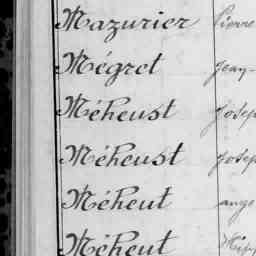 Mazurier Pierre
Mégret Jean-
Méheust Josep
Méheust Josep
Méheut ange
Méheut Hipp